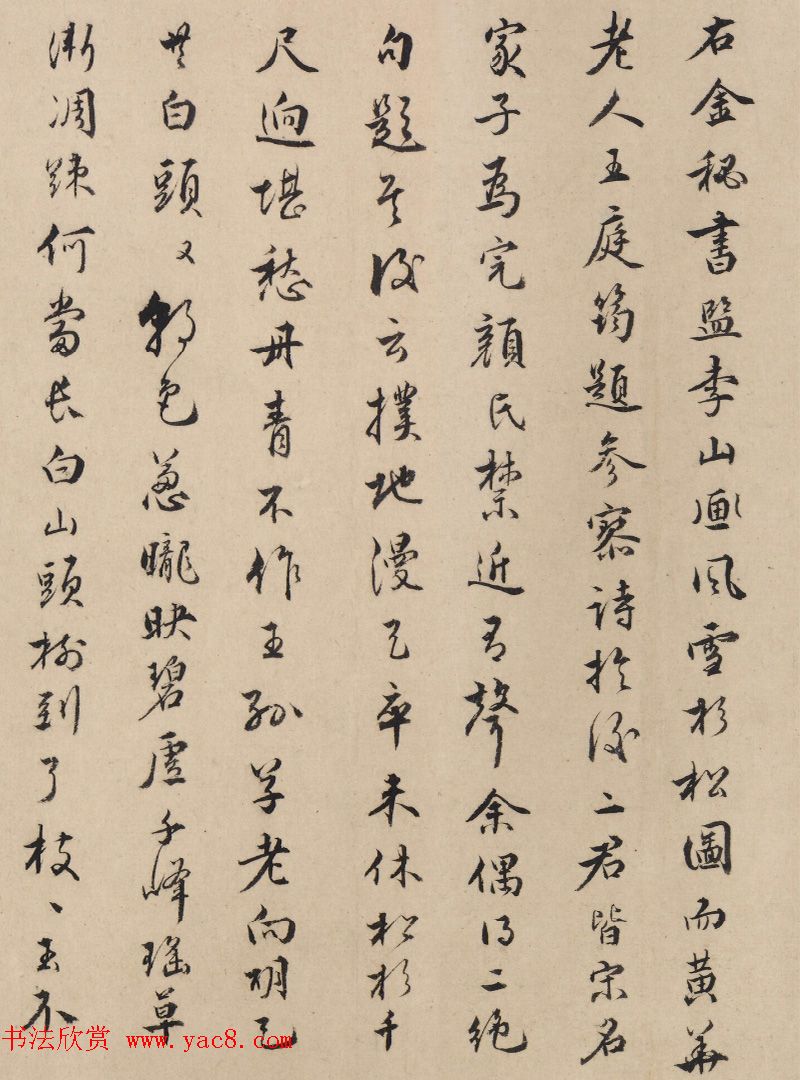 右金秘書監李山画風雪杉松圖而黃華
老人王庭筠題參寥詩於後二君皆宋名
家子為完顏氏禁近有聲余偶得二絕
句題其後云撲地漫天卒未休松杉千
尺迥堪愁丹青不作王孫草老向胡天
共白頭又色蔥曨映碧虛千峰瑤草
漸凋疎何當長白山頭樹到了枝〻玉不
书法欣赏 www.yac8.com